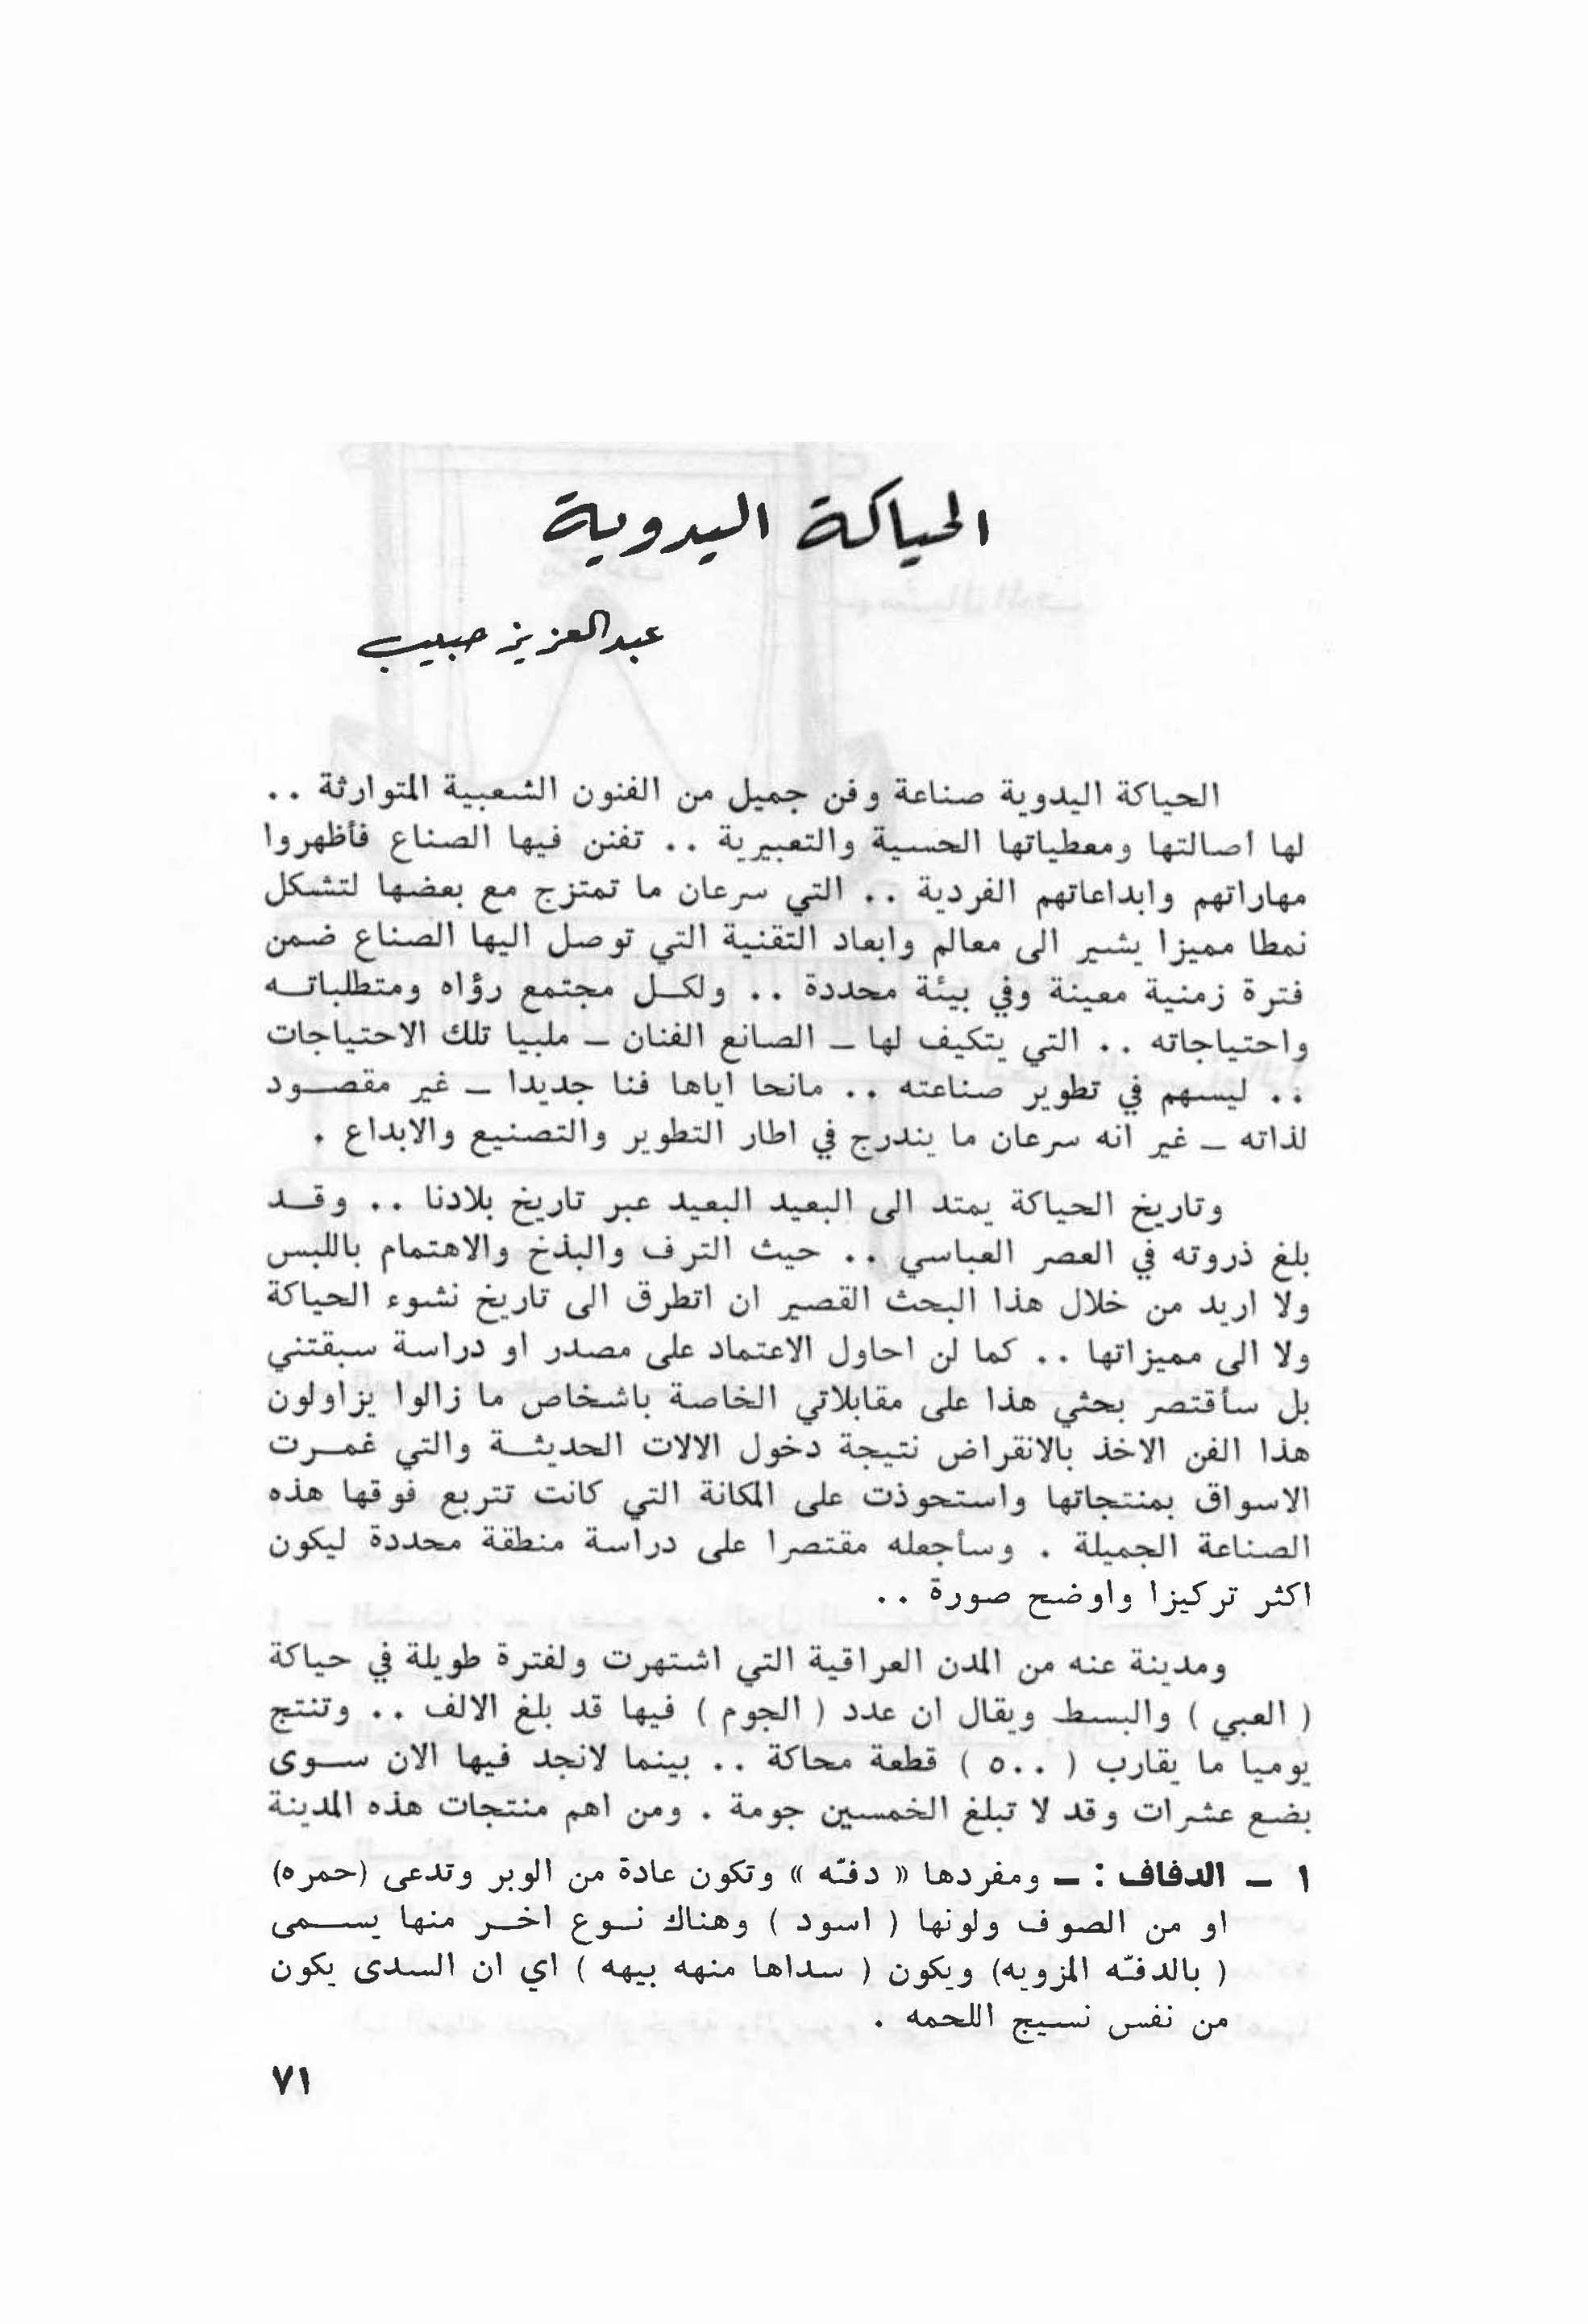 الحياكة اليدوية
عبدالعزيز حبيب
الحياكة اليدوية صناعة وفن جميل من الفنون الشعبية المتوارثة ..
لها اصالتها ومعطياتها الحسية والتعبيرية .. تفنن فيها الصناع فأظهروا
مهاراتهم وابداعاتهم الفردية .. التي سرعان ما تمتزج مع بعضها لتشكل
نمطا مميزا يشير الى معالم وابعاد التقنية التي توصل اليها الصناع ضمن
فترة زمنية معينة وفي بيئة محددة .. ولكل مجتمع رؤاه ومتطلباته
واحتياجاته .. التي يتكيف لها – الصانع الفنان – ملبيا تلك الاحتياجات
.. ليسهم في تطوير صناعته .. مانحا اياها فنا جديدا – غير مقصود
لذاته – غير انه سرعان ما يندرج في اطار التطوير والتصنيع والابداع .
وتاريخ الحياكة يمتد الى البعيد البعيد عبر تاريخ بلادنا .. وقد
بلغ ذروته في العصر العباسي .. حيث الترف والبذخ والاهتمام باللبس
ولا اريد من خلال هذا البحث القصير ان اتطرق الى تاريخ نشوء الحياكة
ولا الى مميزاتها .. كما لن احاول الاعتماد على مصدر او دراسة سبقتني
بل سأقتصر بحثي هذا على مقابلاتي الخاصة باشخاص ما زالوا يزاولون
هذا الفن الاخذ بالانقراض نتيجة دخول الالات الحديثة والتي غمرت
الاسواق بمنتجاتها واستحوذت على المكانة التي كانت تتربع فوقها هذه
الصناعة الجميلة . وسأجعله مقتصرا على دراسة منطقة محددة ليكون
اكثر تركيزا واوضح صورة ..
ومدينة عنه من المدن العراقية التي اشتهرت ولفترة طويلة في حياكة
( العبي ) والبسط ويقال ان عدد ( الجوم ) فيها قد بلغ الالف .. وتنتج
يوميا ما يقارب ( ٥٠٠ ) قطعة محاكة .. بينما لانجد فيها الان سوى
بضع عشرات وقد لا تبلغ الخمسين جومة . ومن اهم منتجات هذه المدينة
١ – الدفاف : – ومفردها « دفّه » وتكون عادة من الوبر وتدعى (حمره)
او من الصوف ولونها ( اسود ) وهناك نوع اخر منها يسمى
( بالدفّه المزويه) ويكون ( سداها منهه بيهه ) اي ان السدى يكون
من نفس نسيج اللحمه .
٧١